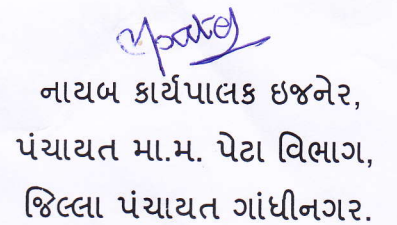 નાયબ કાર્યપાલક ઇજનેર,
પંચાયત મા.મ. પેટા વિભાગ,
જિલ્લા પંચાયત ગાંધીનગર.